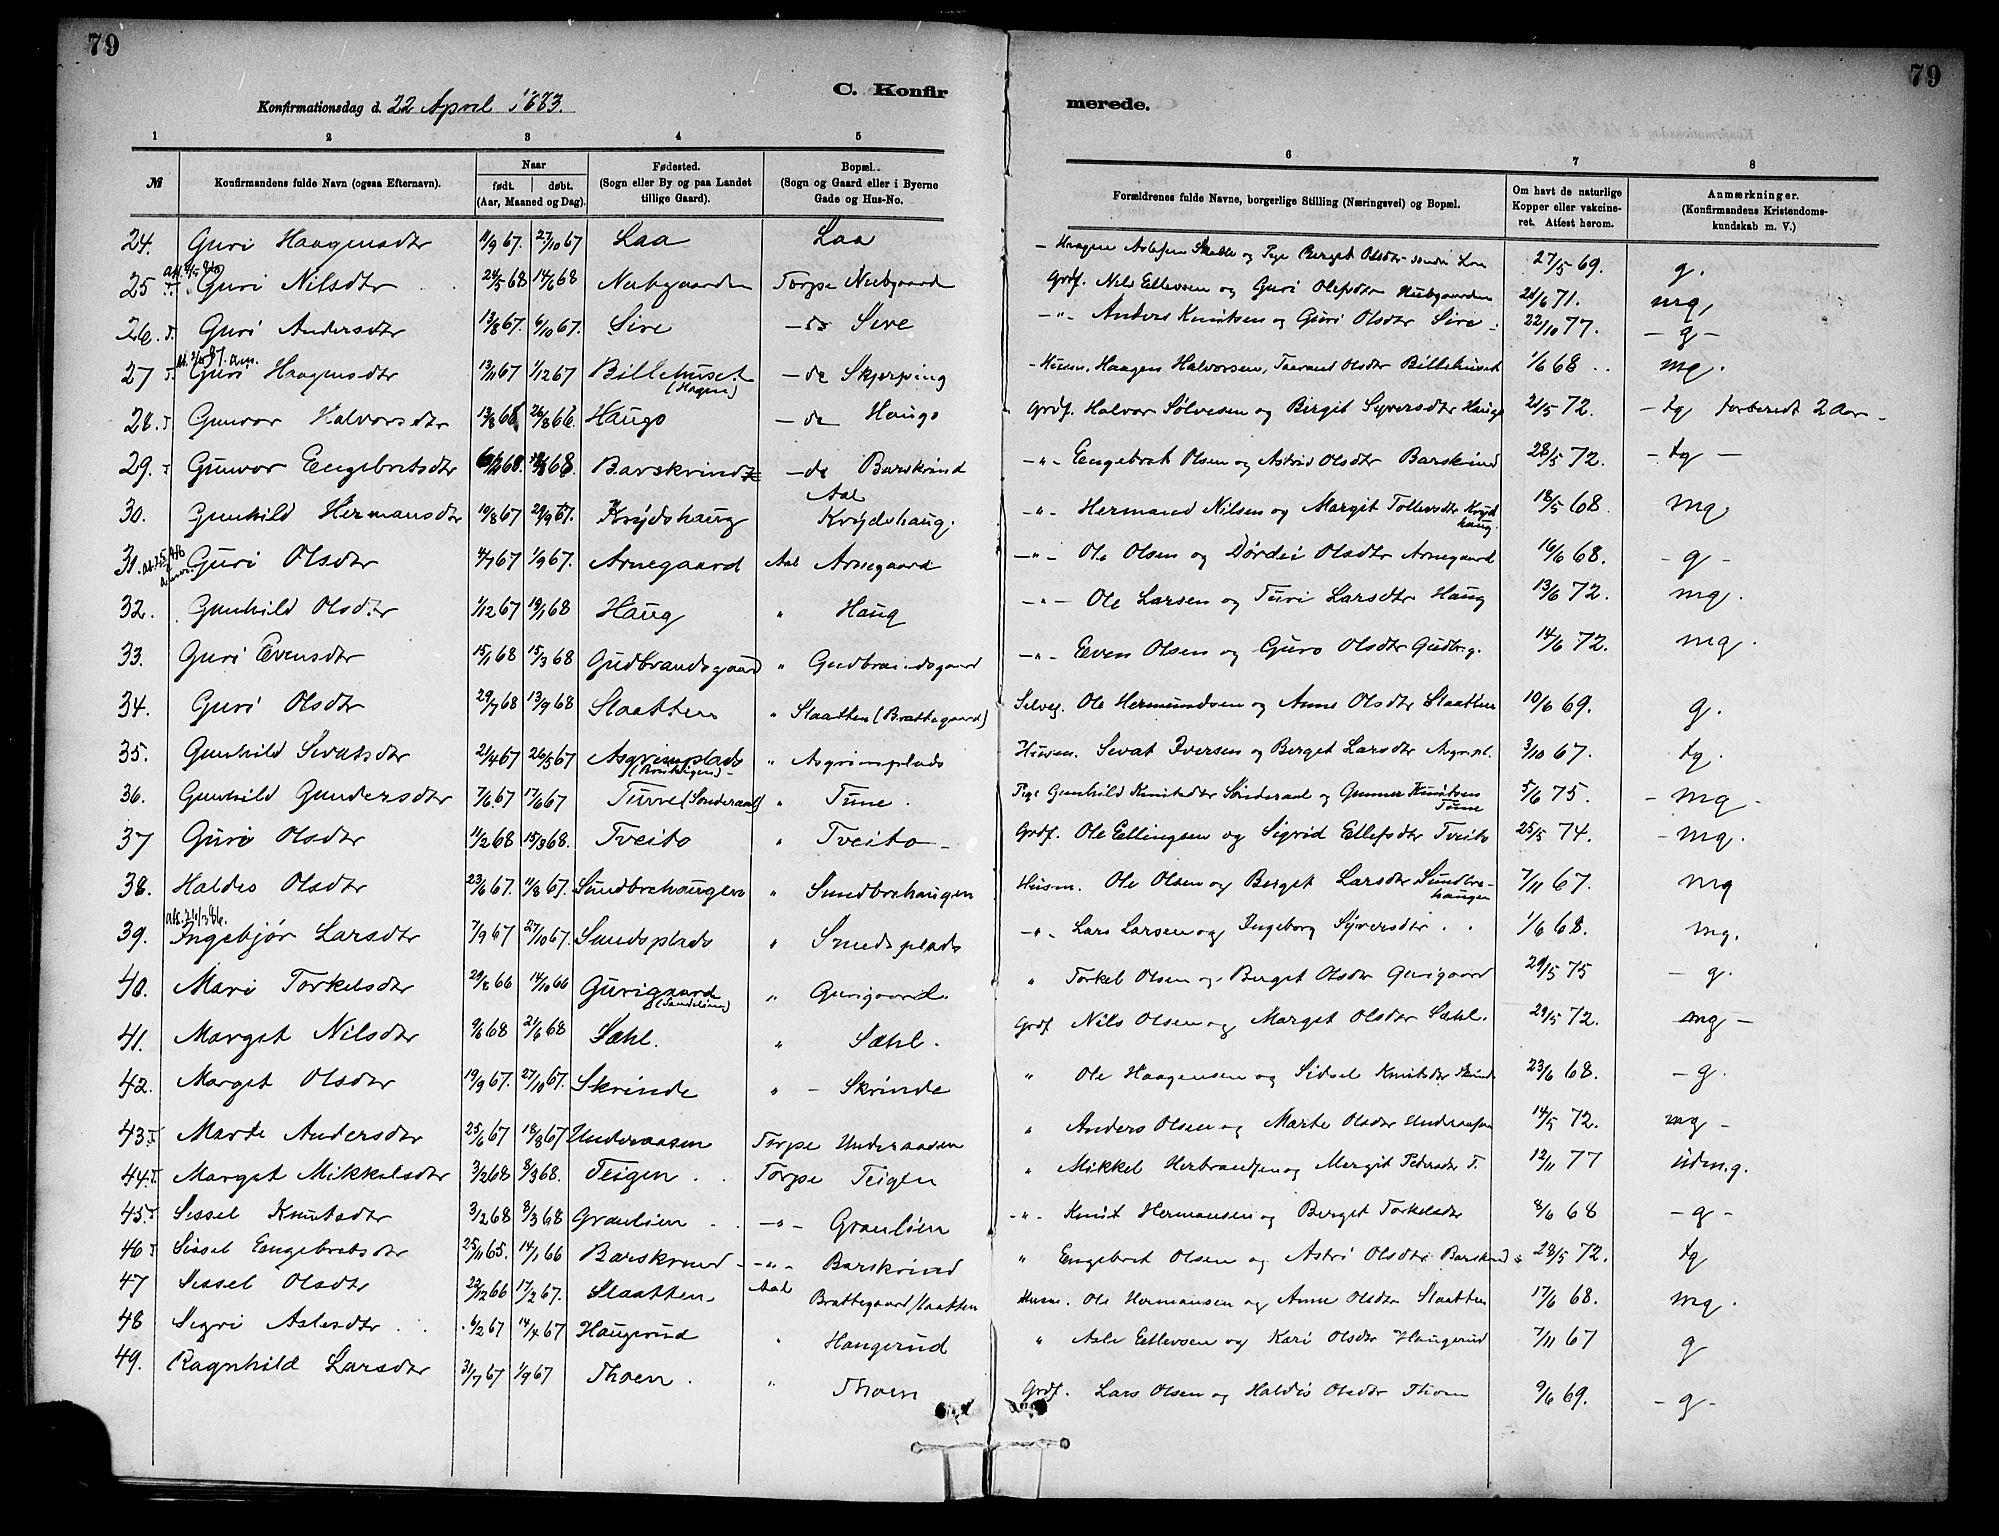 79
79
C. Konfir
merede.
Konfirmationsdag d. 22 April 1883.
1 2 3 4 5 6 7 8
№ Konfirmandens fulde Navn (ogsaa Efternavn). Naar født. døbt. (Aar, Maaned og Dag). Fødested. (Sogn eller By og paa Landet tillige Gaard). Bopæl. (Sogn og Gaard eller i Byerne Gade og Hus-No. Forældrenes fulde Navne, borgerlige Stilling (Næringsvei) og Bopæl. Om havt de naturlige Kopper eller vakcineret. Attest herom. Anmærkninger. (Konfirmandens Kristendomskundskab m. V.)
24. Guri Haagensdtr 11/9 67. 27/10 67 Laa Laa - Haagen Aslesen og Pige Berget Olsdtr 27/5 69. g.
25 Guri Nilsdtr 24/5 68 14/6 68 Nubgaarden Torpe Nubgaarden Grdf. Nils Ellevsen og Guri Olsdtr Nubgaarden 21/6 71. mg,
26. Guri Andersdtr 13/8 67. 6/10 67. Sire - do Sire - " - Anders Knutsen og Guri Olsdtr Sire 22/10 77. - g -
27 Guri Haagensdtr 13/11 67 1/12 67 Billehuset (Hagen) - do Skjerping - Husm. Haagen Halvorsen, Taarand Olsdtr Billehuset 1/6 68 mg.
28. Gunvor Halvorsdtr 13/8 66. 26/8 66. Haugo - do Haugo Grdf. Halvor Sølvesen og Birgit Syversdtr Haugo 21/5 72. - tg forberedt 2 Aar -
29. Gunvor Engebretsdtr 68. 68. Barskrind - do Barskrind - " - Engebret Olsen og Astrid Olsdtr Barskrind 28/5 72. - tg -
30. Gunhild Hermansdtr 10/8 67 29/9 67. Krydshaug Aal Krydshaug. - " - Hermand Nilsen og Margit Tollevsdtr Krydshaug. 18/5 68. mg.
31. Guri Olsdtr 4/7 67 1/9 67. Arnegaard Aal Arnegaard - " - Ole Olsen og Dørdei Olsdtr Arnegaard 16/6 68. - g -
32. Gunhild Olsdtr 1/12 67 19/1 68 Haug " Haug - " - Ole Larsen og Turi Larsdtr Haug 13/6 72. mg.
33. Guri Evensdtr 15/1 68 15/3 68 Gudbrandsgaard " Gudbrandsgaard - " - Even Olsen og Guro Olsdtr Gudbrg. 14/6 72. mg.
34. Guri Olsdtr 29/7 68 13/9 68 Slaatten " Slaatten (Brattegaard) Selvej. Ole Hermundsen og Anne Olsdtr Slaatten 10/6 69. g.
35. Gunhild Sevatsdtr 21/4 67 26/5 67 Asgrimsplads " Asgrimsplads Husm. Sevat Iversen og Berget Larsdtr Asgrimspl. 3/10 67. tg.
36. Gunhild Gundersdtr 7/6 67 17/6 67 Turre (Sønderaal) " Tune. Pige Gunhild Knutsdtr Sønderaal og Gunner Knutsen Tune 5/6 75. - mg -
37 Guri Olsdtr 11/2 68 15/3 68. Tveito " Tveito - Grdf. Ole Ellingsen og Sigrid Ellefsdtr Tveito 25/5 74. - mg.
38. Haldis Olsdtr 23/6 67. 11/8 67. Sundbrehaugen " Sundbrehaugen Husm. Ole Olsen og Berget Larsdtr Sundbrehaugen 7/11 67. mg
39. Ingebjør Larsdtr 7/9 67 27/10 67. Sundsplads " Sundsplads - " - Lars Larsen og Ingeborg Syversdtr 1/6 68. mg.
40. Mari Torkelsdtr 29/8 66 14/10 66 Gurigaard " Gurigaard. " Torkel Olsen og Berget Olsdtr Gurigaard 29/5 75 - g.
41. Marget Nilsdtr 9/6 68 21/6 68 Sæhl. " Sæhl. Grdf Nils Olsen og Marget Olsdtr Sæhl. 29/5 72. mg -
42. Marget Olsdtr 19/9 67. 27/10 67. Skrinde " - Skrinde " Ole Haagensen og Sidsel Knutsdtr Skrinde 23/6 68. - g.
43 Marte Andersdtr 25/6 67 18/8 67 Underaasen Torpe Underaasen " Anders Olsen og Marte Olsdtr Underaasen 14/5 72. mg -
44. Marget Mikkelsdtr 3/2 68 8/3 68. Teigen Torpe Teigen " Mikkel Herbrandsen og Mergit Pedersdtr T. 12/11 77 udm.g.
45. Sissel Knutsdtr 3/2 68 8/3 68 Granlien - " - Granlien - " - Knut Hermansen og Berget Torkelsdtr 8/6 68 - g -
46 Sissel Engebretsdtr 25/11 65. 14/1 66 Barskrind - " - Barskrind " Engebret Olsen og Astri Olsdtr Barskrind 28/5 72. tg
47 Sissel Olsdtr 22/12 66 17/2 67. Slaatten. Aal Brattegaard Slaatten Husm. Ole Hermansen og Anne Olsdtr Slaatten 17/6 68. mg.
48 Segri Aslesdtr 6/2 67 14/4 67 Haugerud " Haugerud " Asle Ellevsen og Kari Olsdtr Haugerud 7/11 67 g
49. Ragnhild Larsdtr 31/7 67 1/9 67 Thoen. " Thoen Grdf. Lars Olsen og Haldis Olsdtr Thoen 9/6 69. - g -